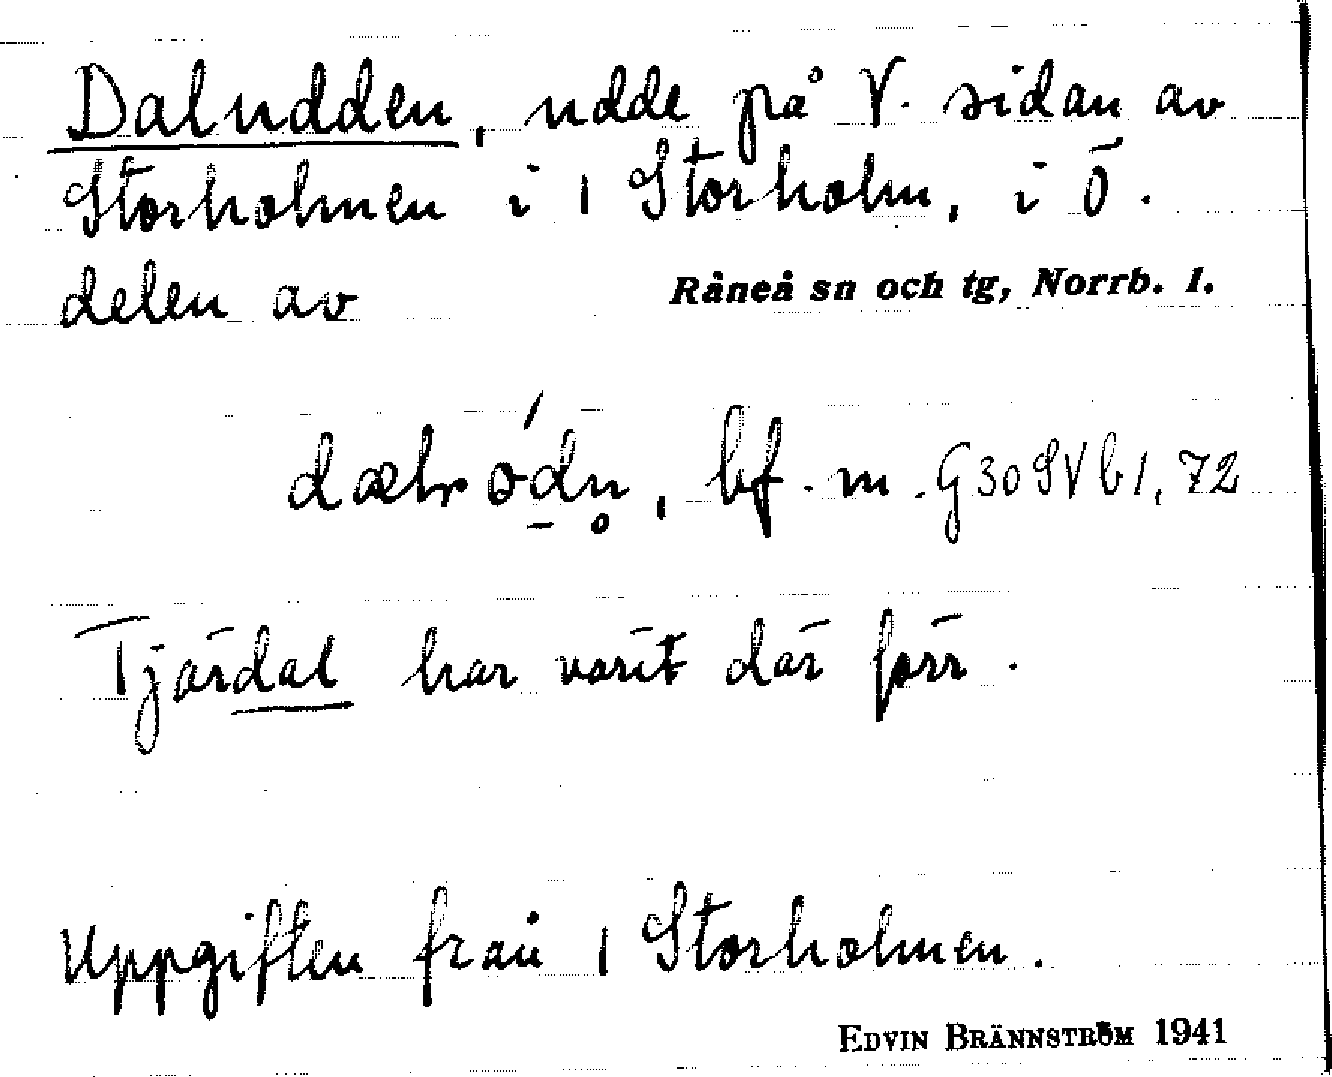 Daludden, udde på V. sidan av
Storholmen i 1 Storholm, i Ö.
delen av Råneå sn och tg, Norrb. l.
bf. m. G30SVb1, 72
Tjärdal har varit där förr.
Uppgiften från 1 Storholmen.
EDVIN BRÄNNSTRÖM 1941